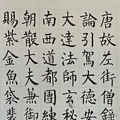 唐故左街僧錄
論引駕大德安
大達法師玄秘
南西道都團練
朝散大夫兼御
賜紫金魚袋裴